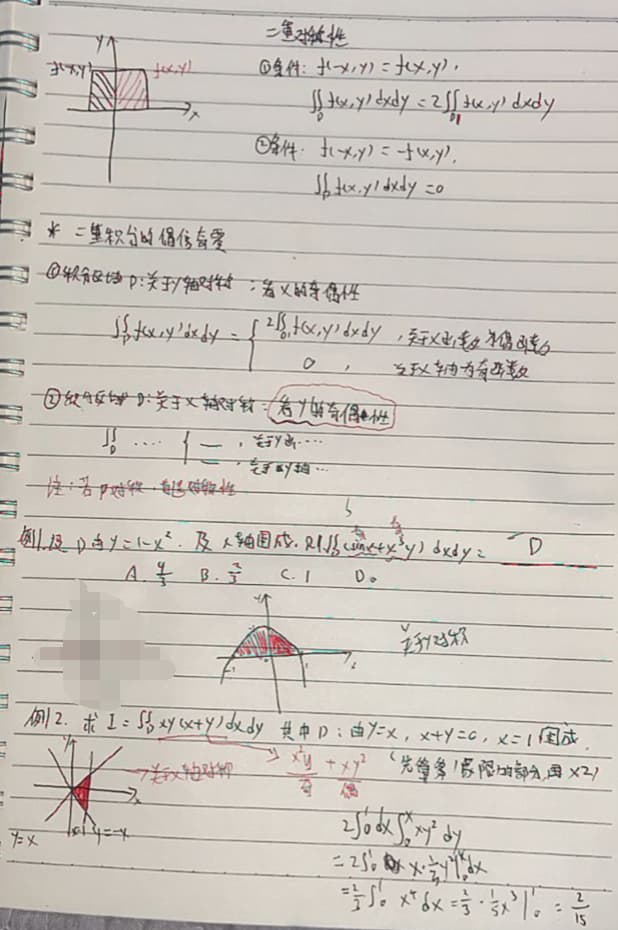 二重对称性
y
f(-x,y)
f(x,y)
x
①条件: f(-x,y) = f(x,y).
∬_D f(x,y) dxdy = 2∬_{D1} f(x,y) dxdy
②条件. f(-x,y) = -f(x,y).
∬_D f(x,y) dxdy = 0
* 二重积分的偶倍奇零
①积分区域 D:关于y轴对称 ; 看x的奇偶性
∬_D f(x,y) dxdy = { 2∬_{D1} f(x,y) dxdy , 关于x 偶函数
0 , 关于x 奇函数
②积分区域 D:关于x轴对称: 看y的奇偶性
∬_D .... { — , 关于y ...
— , 关于 y ...
注: 若D对称, 对称性
例1. 设 D 由 y=1-x². 及 x轴围成. 则∬_D (sinx+x³y) dxdy = D
A. 4/3 B. 2/3 C. 1 D. 0
关于y对称
例2. 求 I = ∬_D xy(x+y) dxdy 其中 D: 由 y=x, x+y=0, x=1 围成.
关于x轴对称
x²y + xy²
奇 偶
(先算第1象限的部分, 再 ×2)
y=x
y=-x
2∫₀¹dx∫₀ˣ xy² dy
= 2∫₀¹ x·⅓y³|₀ˣ dx
= ⅔∫₀¹ x⁴ dx = ⅔ · ⅕x⁵|₀¹ = 2/15